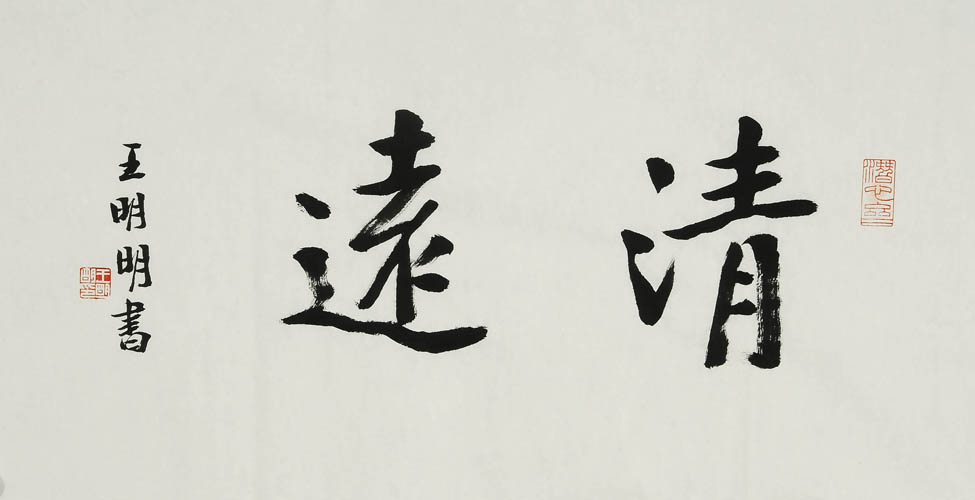 清遠
王明明書